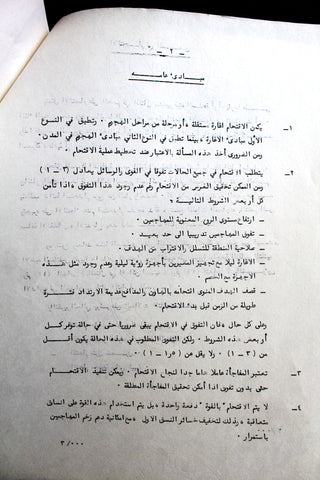 - ٢ -
مبادىء عامه
١ - يكون الاقتحام اغارة مستقلة ، أو مرحلة من مراحل الهجوم . وتطبق في النوع
الاول مبادىء الاغارة ، بينما تطبق في النوع الثاني مبادىء الهجوم في المدن .
ومن الضروري أخذ هذه المسألة بالاعتبار عند تخطيط عملية الاقتحام .
٢ - يتطلب الاقتحام في جميع الحالات تفوقا في القوى والوسائل يعادل (٣ - ١)
ومن الممكن تحقيق الغرض من الاقتحام رغم عدم وجود هذا التفوق ، اذا تأمن
كل أو بعض الشروط التالية :
- ارتفاع مستوى الروح المعنوية للمهاجمين .
- تفوق المهاجمين تدريبيا الى حد بعيد .
- صلاحية المنطقة للتسلل والاقتراب من الهدف .
- الاغارة ليلا مع تجهيز المغيرين بأجهزة رؤية ليلية وعدم وجود مثل هذه
الاجهزة مع الخصم .
- قصف الهدف المنوى اقتحامه بالهاون والمدافع عديمة الارتداد لفترة
طويلة من الزمن قبل بدء الاقتحام .
وعلى كل حال ، فان التفوق في الاقتحام يبقى ضروريا حتى في حالة توفر كل
أو بعض هذه الشروط . ولكن التفوق المطلوب في هذه الحالة يكون أقل
من (٣ - ١) . ولا يقل عن (٥ر١ - ١) .
٣ - تعتبر المفاجأة عاملا هاما جدا لنجاح الاقتحام . ويمكن تنفيذ الاقتحام
حتى بدون تفوق اذا أمكن تحقيق المفاجأة المطلقة .
٤ - لا يتم الاقتحام بالقوة دفعة واحدة ، بل يتم استخدام هذه القوة على انساق
متعاقبة ، وذلك لتخفيف خسائر النسق الاول ، مع امكانية دعم زخم المهاجمين
باستمرار .
٣/٠٠٠